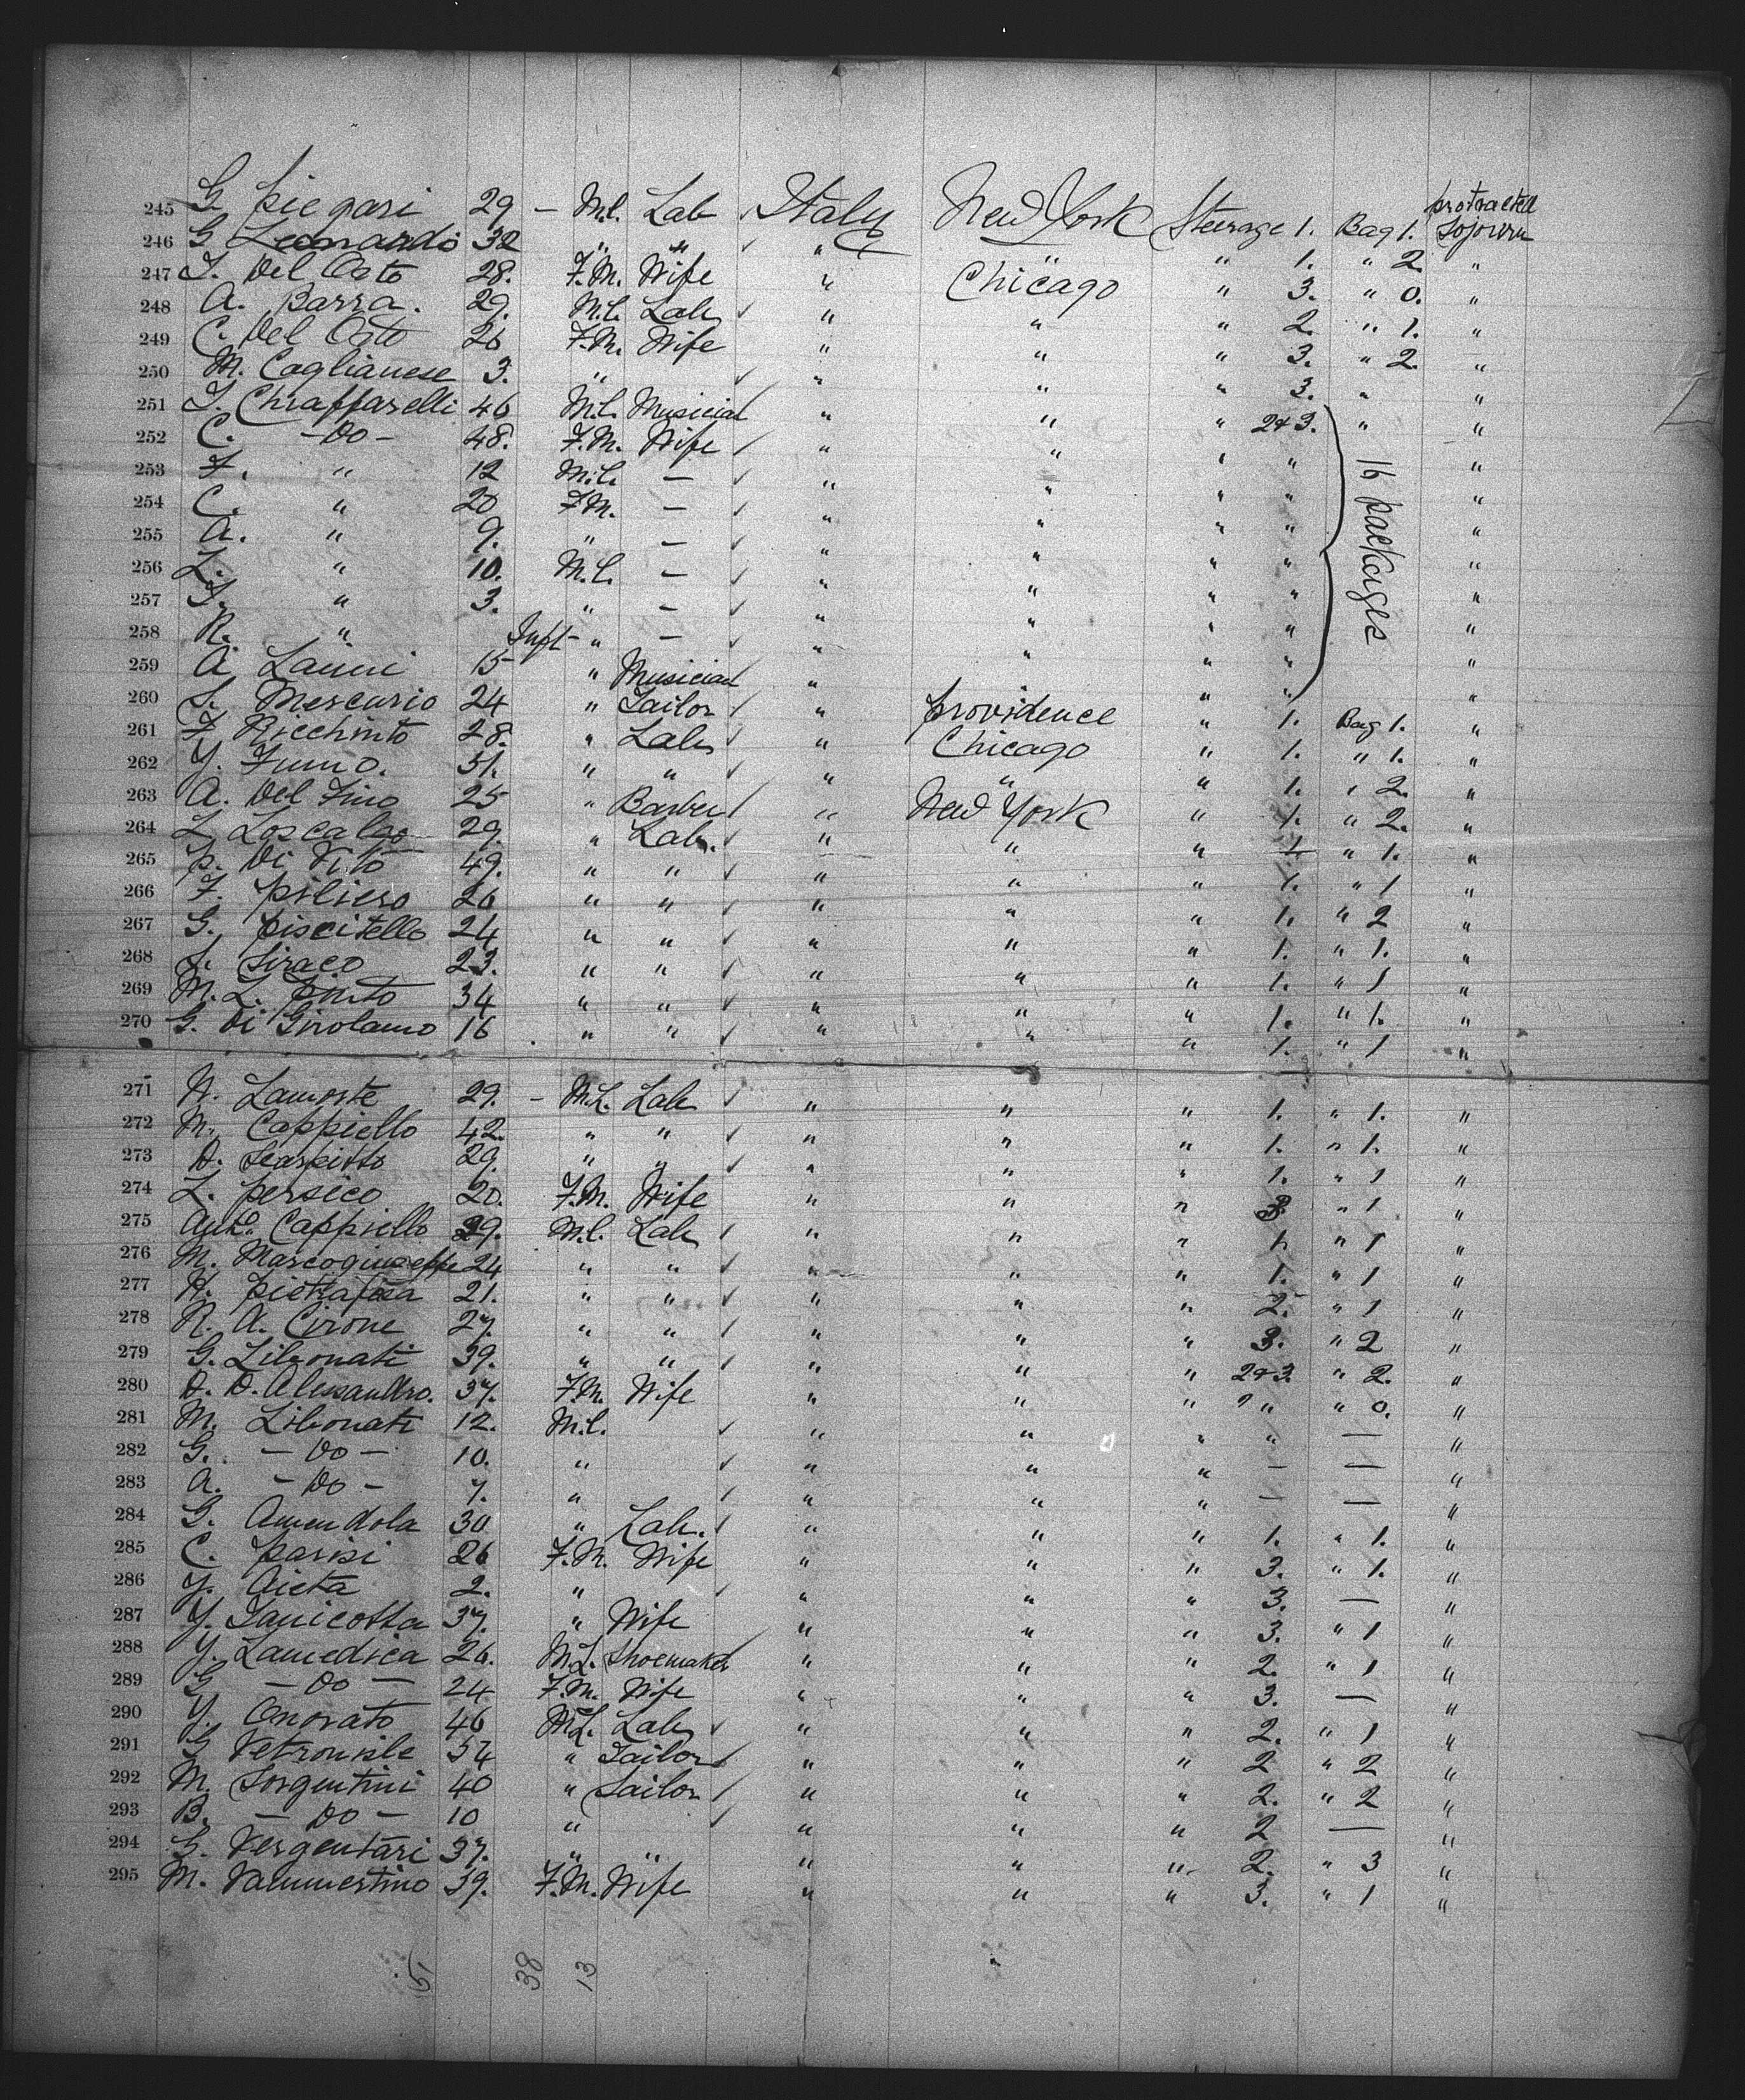 245 G. Piegari 29 — M.l. Lab Italy New York Steerage 1. Bag 1. protracted Sojourn
246 G. Leonardo 32 " " ✓ " " " 1. " 2. "
247 T. Del Orto 28. F.M. Wife " Chicago " 3. " 0. "
248 A. Barra. 29. M.l. Lab ✓ " " " 2. " 1. "
249 C. Del Orto 26 F.M. Wife " " " 3. " 2. "
250 M. Caglianese 3. " ✓ " " " 3. " "
251 T. Chiaffarelli 46 M.l. Musician " " " 2&3. " "
252 C. — Do — 48. F.M. Wife ✓ " " " " "
253 F. " 12 M.l. — ✓ " " " " "
254 C. " 20 F.M. — ✓ " " " " "
255 A. " 9. " — ✓ " " " " "
256 L. " 10. M.l. — ✓ " " " " "
257 " 3. " — ✓ " " " " "
258 R. " Inft — " — ✓ " " " " "
16 packages
259 A. Lanni 15 " Musician " " " " "
260 S. Mercurio 24 " Tailor ✓ " Providence " 1. Bag 1. "
261 F. Ricchinto 28. " Lab ✓ " Chicago " 1. " 1. "
262 Y. Fumo. 51. " " ✓ " " " 1. " 2. "
263 A. Del Fino 25 " Barber ✓ " New York " 1. " 2. "
264 L. Loscalzo 29. " Lab. ✓ " " " 1. " 1. "
265 P. Di Vito 49. " " ✓ " " " 1. " 1 "
266 F. Piliero 26 " " ✓ " " " 1. " 2 "
267 G. Piscitello 24 " " ✓ " " " 1. " 1. "
268 S. Siraco 23. " " ✓ " " " 1. " 1 "
269 M. L. Pinto 34 " " ✓ " " " 1. " 1. "
270 G. Di Girolamo 16 " " ✓ " " " 1. " 1 "
271 N. Lamorte 29. — M.L. Lab ✓ " " " 1. " 1. "
272 M. Cappiello 42. " " ✓ " " " 1. " 1. "
273 D. Scarpitto 29. " " ✓ " " " 1. " 1 "
274 L. Persico 20. F.M. Wife " " " 3 " 1 "
275 Ant. Cappiello 29. M.l. Lab ✓ " " " 1. " 1 "
276 M. Marcogiuseppe 24 " " ✓ " " " 1. " 1 "
277 Pietrafesa 21. " " ✓ " " " 2. " 1 "
278 R. A. Cirone 27. " " ✓ " " " 3. " 2 "
279 G. Libonati 39. " " ✓ " " " 2&3. " 2. "
280 D. D. Alessandro. 37. F.M. Wife " " " " " 0. "
281 M. Libonati 12. M.l. ✓ " " " " — "
282 G. — Do — 10. " ✓ " " " — — "
283 A. — Do — 7. " ✓ " " " — — "
284 G. Amendola 30 " Lab. ✓ " " " 1. " 1. "
285 C. Parisi 26 F.M. Wife " " " 3. " 1. "
286 Y. Aieta 2. " ✓ " " " 3. — "
287 Y. Tanicotta 37. " Wife " " " 3. " 1 "
288 Y. Lamedica 26. M.L. Shoemaker " " " 2. " 1 "
289 G — Do — 24 F.M. Wife " " " 3. — "
290 Y. Onorato 46 M.L. Lab ✓ " " " 2. " 1 "
291 G Petronsile 54 " Tailor ✓ " " " 2 " 2 "
292 M. Sorgentini 40 " Sailor ✓ " " " 2. " 2 "
293 B. — Do — 10 " ✓ " " " 2 — "
294 G. Vergentari 37. " " " " " 2. " 3 "
295 M. Vammestino 39. F.M. Wife " " " 3. " 1 "
38 13